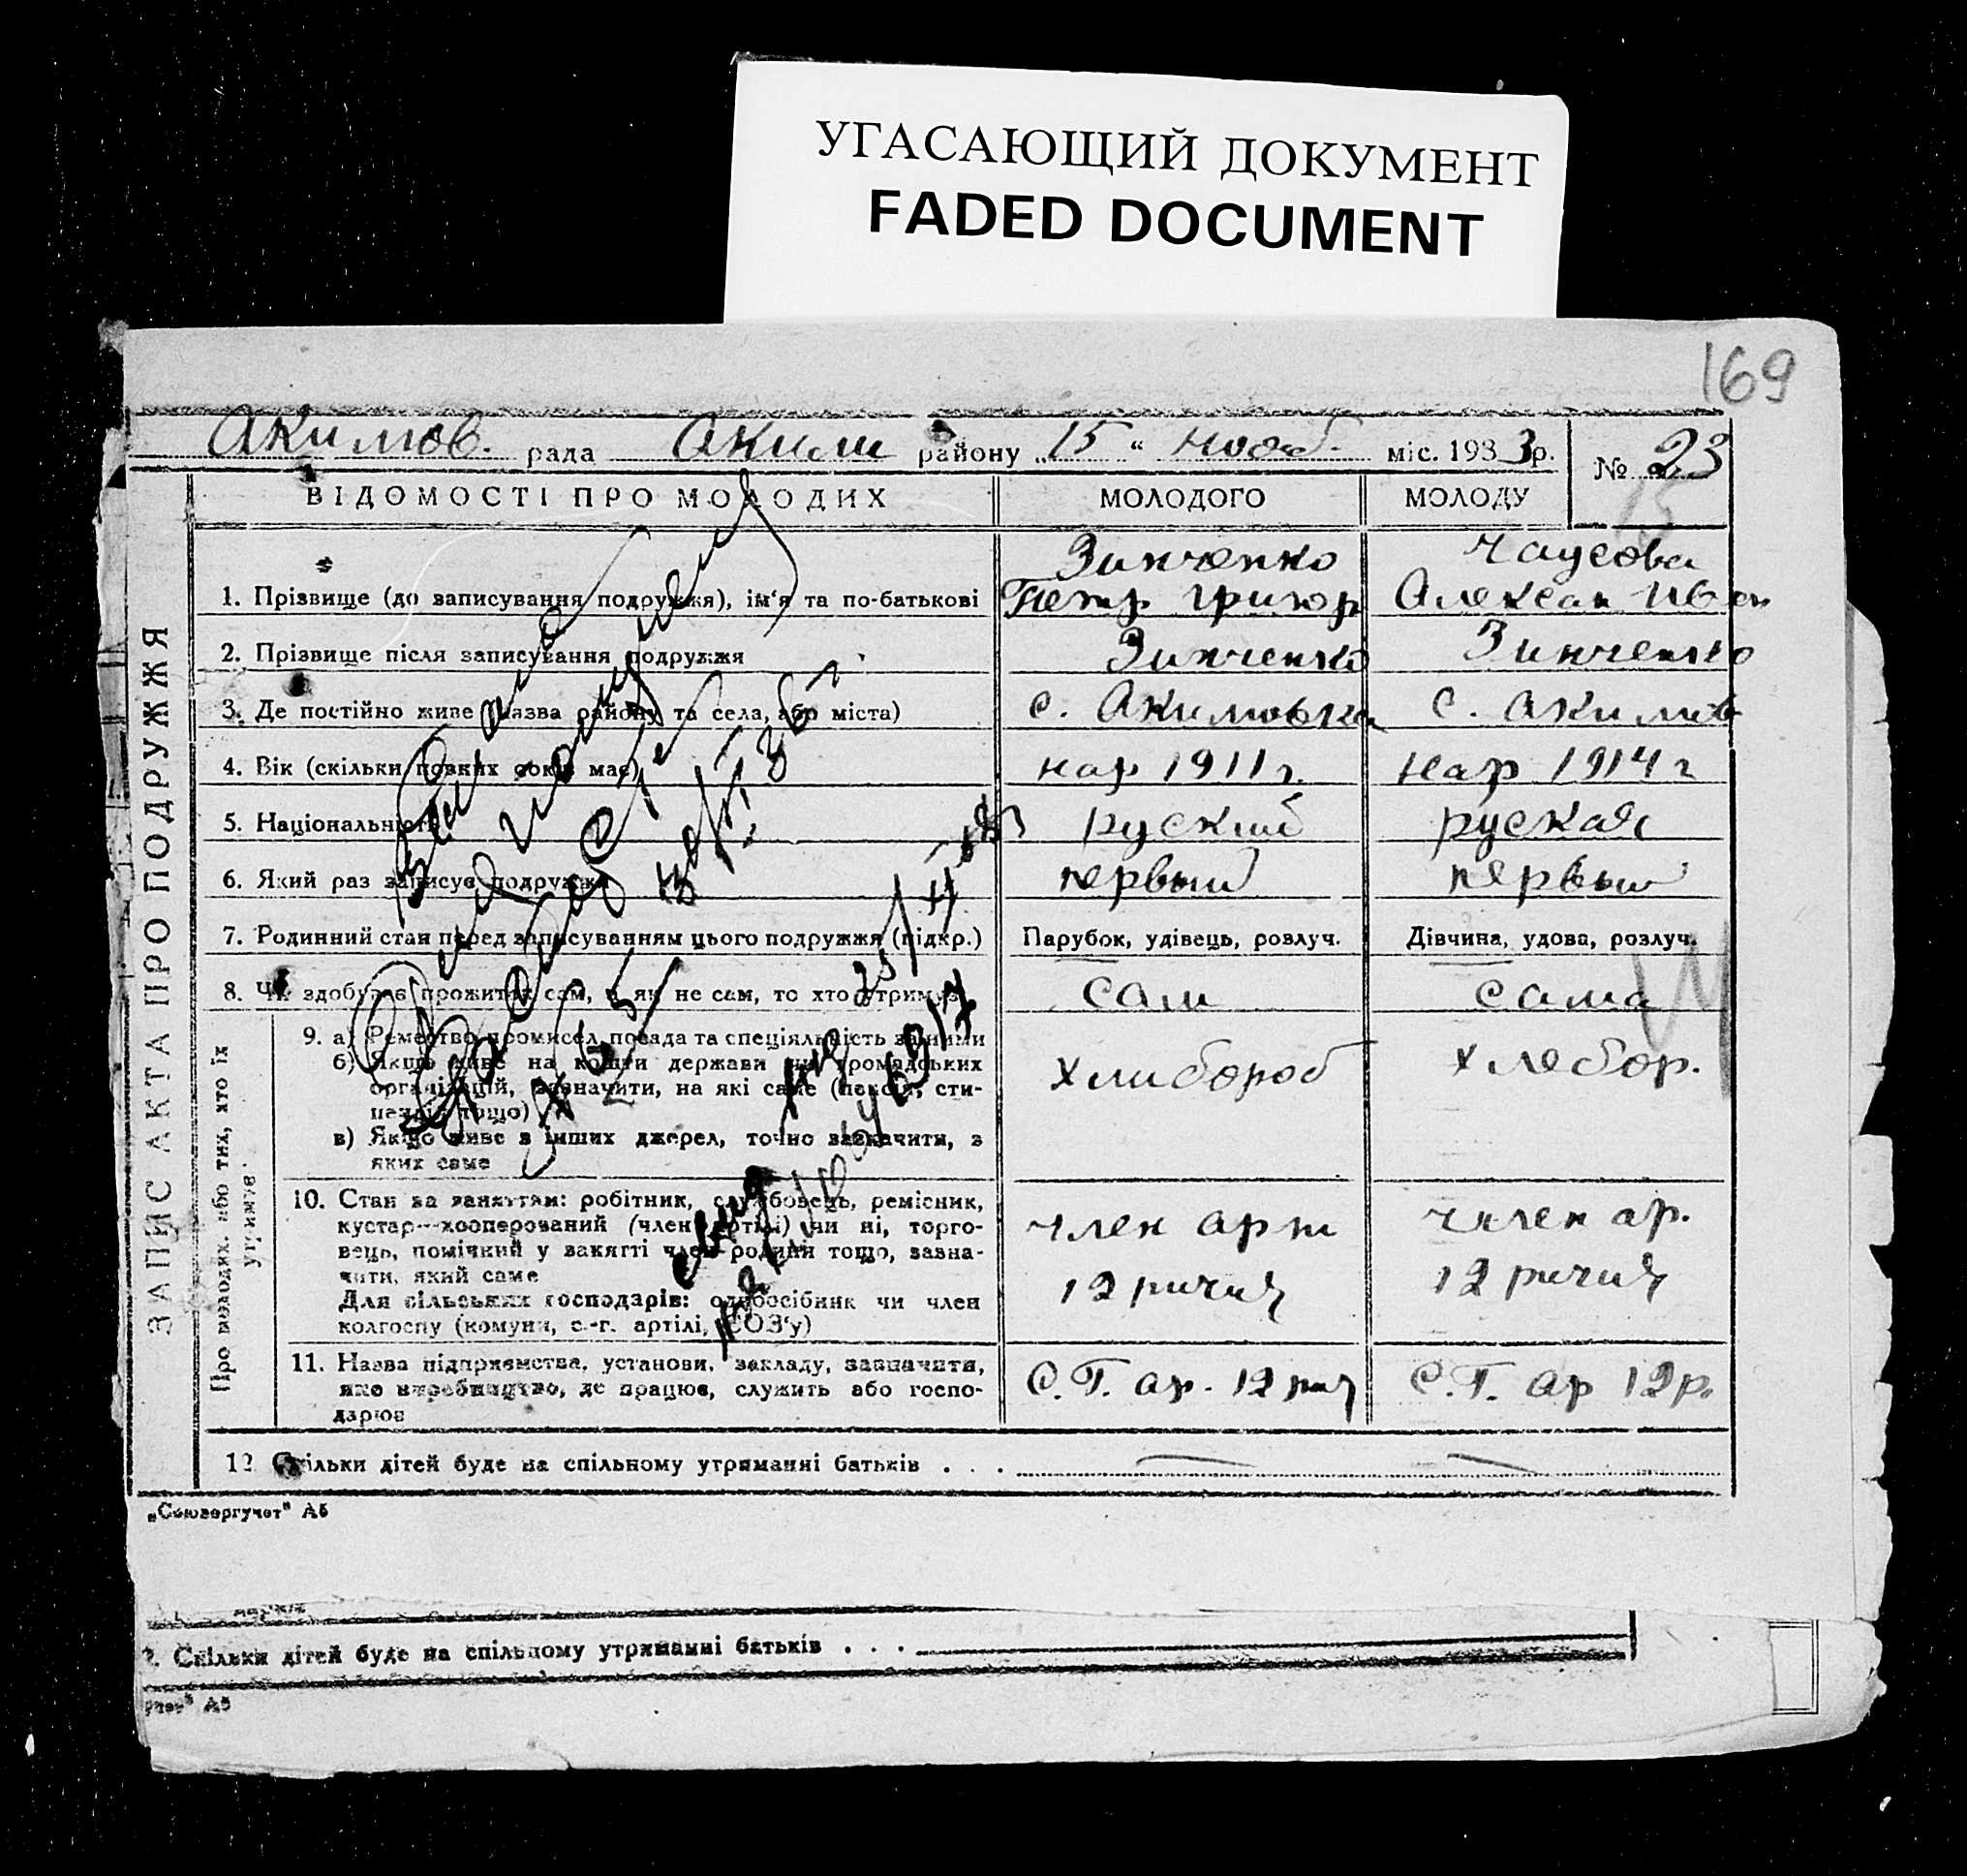 УГАСАЮЩИЙ ДОКУМЕНТ
FADED DOCUMENT
169
Акимов. рада Аким району „15“ нояб. міс. 1933р.
№ 23
15
ЗАПИС АКТА ПРО ПОДРУЖЖЯ
ВІДОМОСТІ ПРО МОЛОДИХ МОЛОДОГО МОЛОДУ
1. Прізвище (до записування подружжя), ім'я та по-батькові Зинченко Петр Григор Чаусова Алексан Иван
2. Прізвище після записування подружжя Зинченко Зинченко
3. Де постійно живе (назва району та села, або міста) с. Акимовка с. Акимов
4. Вік (скільки повних років має) нар 1911 г. нар 1914 г
5. Національність руский руская
6. Який раз записує подружжя первый первый
7. Родинний стан перед записуванням цього подружжя (підкр.) Парубок, удівець, розлуч. Дівчина, удова, розлуч.
8. Чи здобуває прожиток сам, а як не сам, то хто утримує сам сама
Про молодих або тих, хто їх утримує
9. а) Ремество промисел посада та спеціяльність за ними хлибороб хлебор.
б) Якщо живе на кошти держави чи громадських
організацій, зазначити, на які саме (пенсія, сти-
пендія тощо)
в) Якщо живе з інших джерел, точно зазначити, з
яких саме
10. Стан за заняттям: робітник, службовець, ремісник, член арт член ар.
кустар—кооперований (член артілі) чи ні, торго-
вець, помічний у занятті член родини тощо, зазна-
чити, який саме 12 ричия 12 ричия
Для сільських господарів: одноосібник чи член
колгоспу (комуни, с.-г. артілі, СОЗ'у)
11. Назва підприємства, установи, закладу, зазначити, С.Г. ар. 12 рич С.Г. ар 12 р.
яке виробництво, де працює, служить або госпо-
дарює
12 Скільки дітей буде на спільному утриманні батьків . . .
„Союзоргучет" А5
2. Скільки дітей буде на спільному утриманні батьків . . .
А5